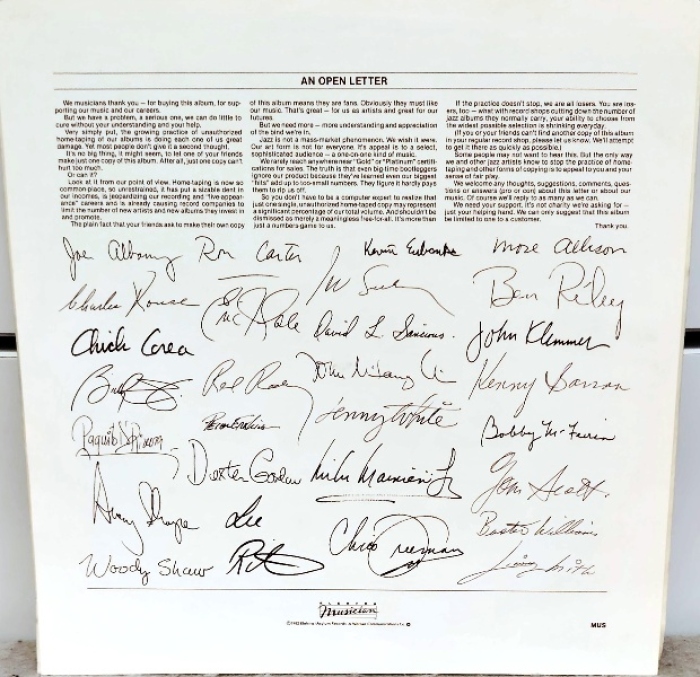 AN OPEN LETTER
We musicians thank you — for buying this album, for sup-
porting our music and our careers.
But we have a problem, a serious one, we can do little to
cure without your understanding and your help.
Very simply put, the growing practice of unauthorized
home-taping of our albums is doing each one of us great
damage. Yet most people don't give it a second thought.
It's no big thing, it might seem, to let one of your friends
make just one copy of this album. After all, just one copy can't
hurt too much.
Or can it?
Look at it from our point of view. Home-taping is now so
common place, so unrestrained, it has put a sizable dent in
our incomes, is jeopardizing our recording and "live appear-
ance" careers and is already causing record companies to
limit the number of new artists and new albums they invest in
and promote.
The plain fact that your friends ask to make their own copy
of this album means they are fans. Obviously they must like
our music. That's great — for us as artists and great for our
futures.
But we need more — more understanding and appreciation
of the bind we're in.
Jazz is not a mass-market phenomenon. We wish it were.
Our art form is not for everyone. It's appeal is to a select,
sophisticated audience — a one-on-one kind of music.
We rarely reach anywhere near "Gold" or "Platinum" certifi-
cations for sales. The truth is that even big time bootleggers
ignore our product because they've learned even our biggest
"hits" add up to too-small numbers. They figure it hardly pays
them to rip us off.
So you don't have to be a computer expert to realize that
just one single, unauthorized home-taped copy may represent
a significant percentage of our total volume. And shouldn't be
dismissed as merely a meaningless free-for-all. It's more than
just a numbers game to us.
If the practice doesn't stop, we are all losers. You see los-
ers, too — what with record shops cutting down the number of
jazz albums they normally carry, your ability to choose from
the widest possible selection is shrinking everyday.
(If you or your friends can't find another copy of this album
in your regular record shop, please let us know. We'll attempt
to get it there as quickly as possible.)
Some people may not want to hear this. But the only way
we and other jazz artists know to stop the practice of home-
taping and other forms of copying is to appeal to you and your
sense of fair play.
We welcome any thoughts, suggestions, comments, ques-
tions or answers (pro or con) about this letter or about our
music. Of course we'll reply to as many as we can.
We need your support. It's not charity we're asking for —
just your helping hand. We can only suggest that this album
be limited to one to a customer.
Thank you.
Joe Albany Ron Carter Kevin Eubanks Mose Allison
Charlie Rouse Ben Riley
David L. Sancious John Klemmer
Chick Corea
Red Rodney Kenny Barron
Lenny White Bobby McFerrin
Paquito D'Rivera
Dexter Gordon Mike Mainieri Jr Tom Scott
Lee
Chico Freeman Buster Williams
Woody Shaw Rit Jimmy Smith
ELEKTRA
Musician
MUS